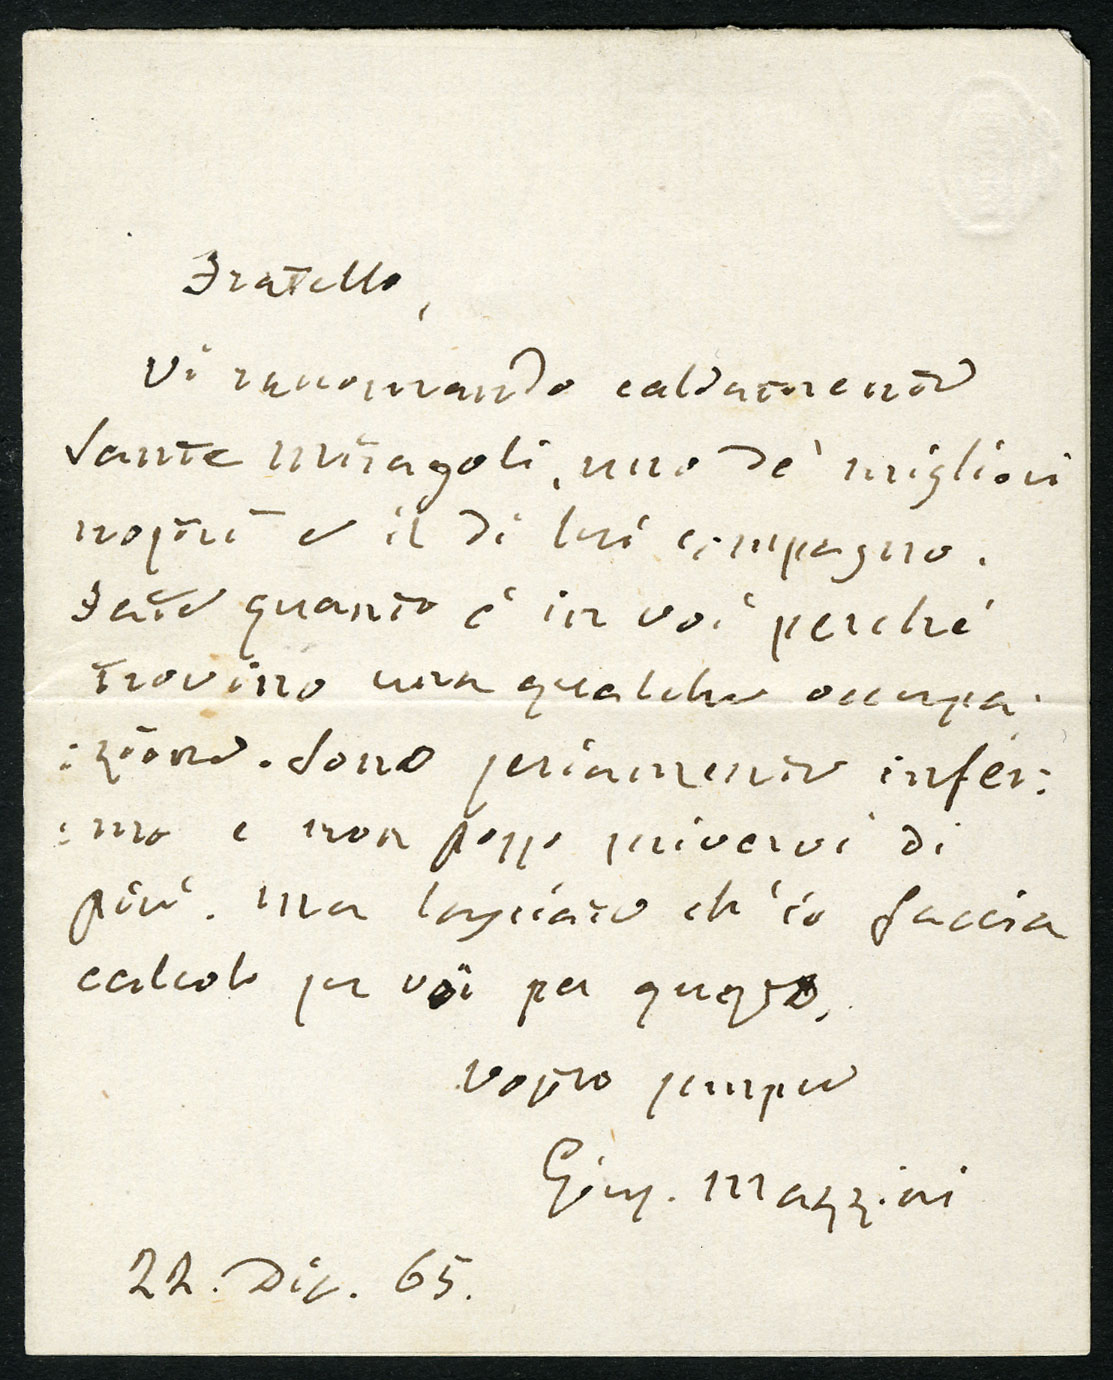 Fratello,
Vi raccomando caldamente
Sante Miragoli, uno de' migliori
nostri e il di lui compagno.
Fate quanto è in voi perché
trovino una qualche occupa-
:zione. Sono seriamente infer:
:mo e non posso scrivervi di
più. Ma lasciate ch'io faccia
calcolo su voi per questo.
Vostro sempre
Gius. Mazzini
22. Dic. 65.